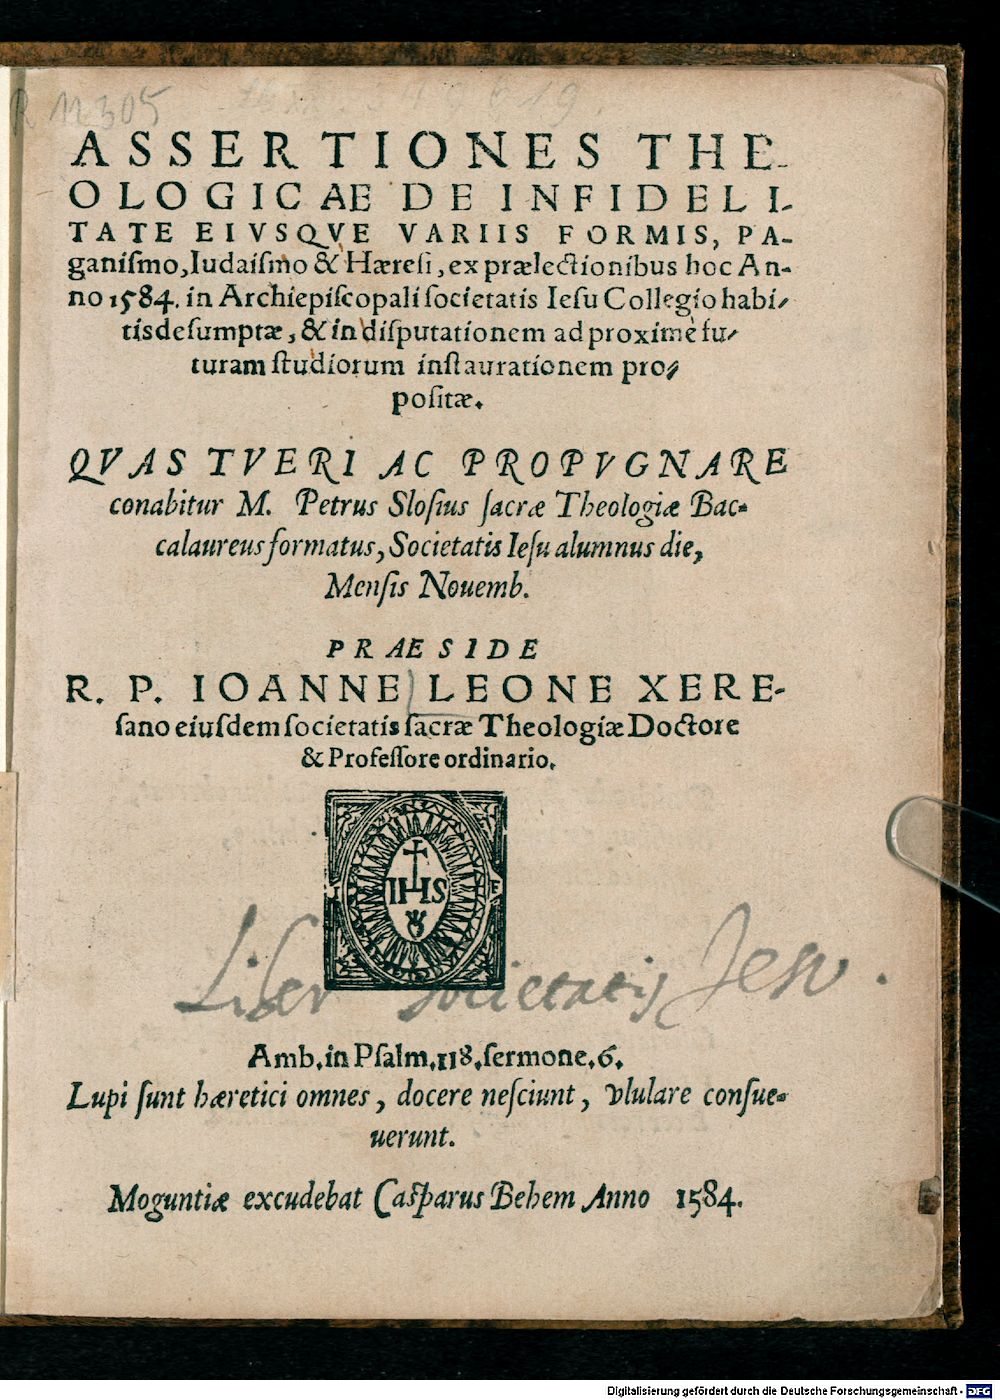 R 11305
ASSERTIONES THE-
OLOGICAE DE INFIDELI-
TATE EIVSQVE VARIIS FORMIS, PA-
ganiſmo, Iudaiſmo & Hæreſi, ex prælectionibus hoc An-
no 1584. in Archiepiſcopali ſocietatis Ieſu Collegio habi-
tis deſumptæ, & in diſputationem ad proximè fu-
turam ſtudiorum inſtaurationem pro-
poſitæ.
QVAS TVERI AC PROPVGNARE
conabitur M. Petrus Sloſius ſacræ Theologiæ Bac-
calaureus formatus, Societatis Ieſu alumnus die,
Menſis Nouemb.
PRAESIDE
R. P. IOANNE LEONE XERE-
ſano eiuſdem ſocietatis ſacræ Theologiæ Doctore
& Profeſſore ordinario.
IHS
Liber Societatis Jesu.
Amb. in Pſalm. 118. ſermone. 6.
Lupi ſunt hæretici omnes, docere neſciunt, vlulare conſue-
uerunt.
Moguntiæ excudebat Caſparus Behem Anno 1584.
Digitalisierung gefördert durch die Deutsche Forschungsgemeinschaft - DFG